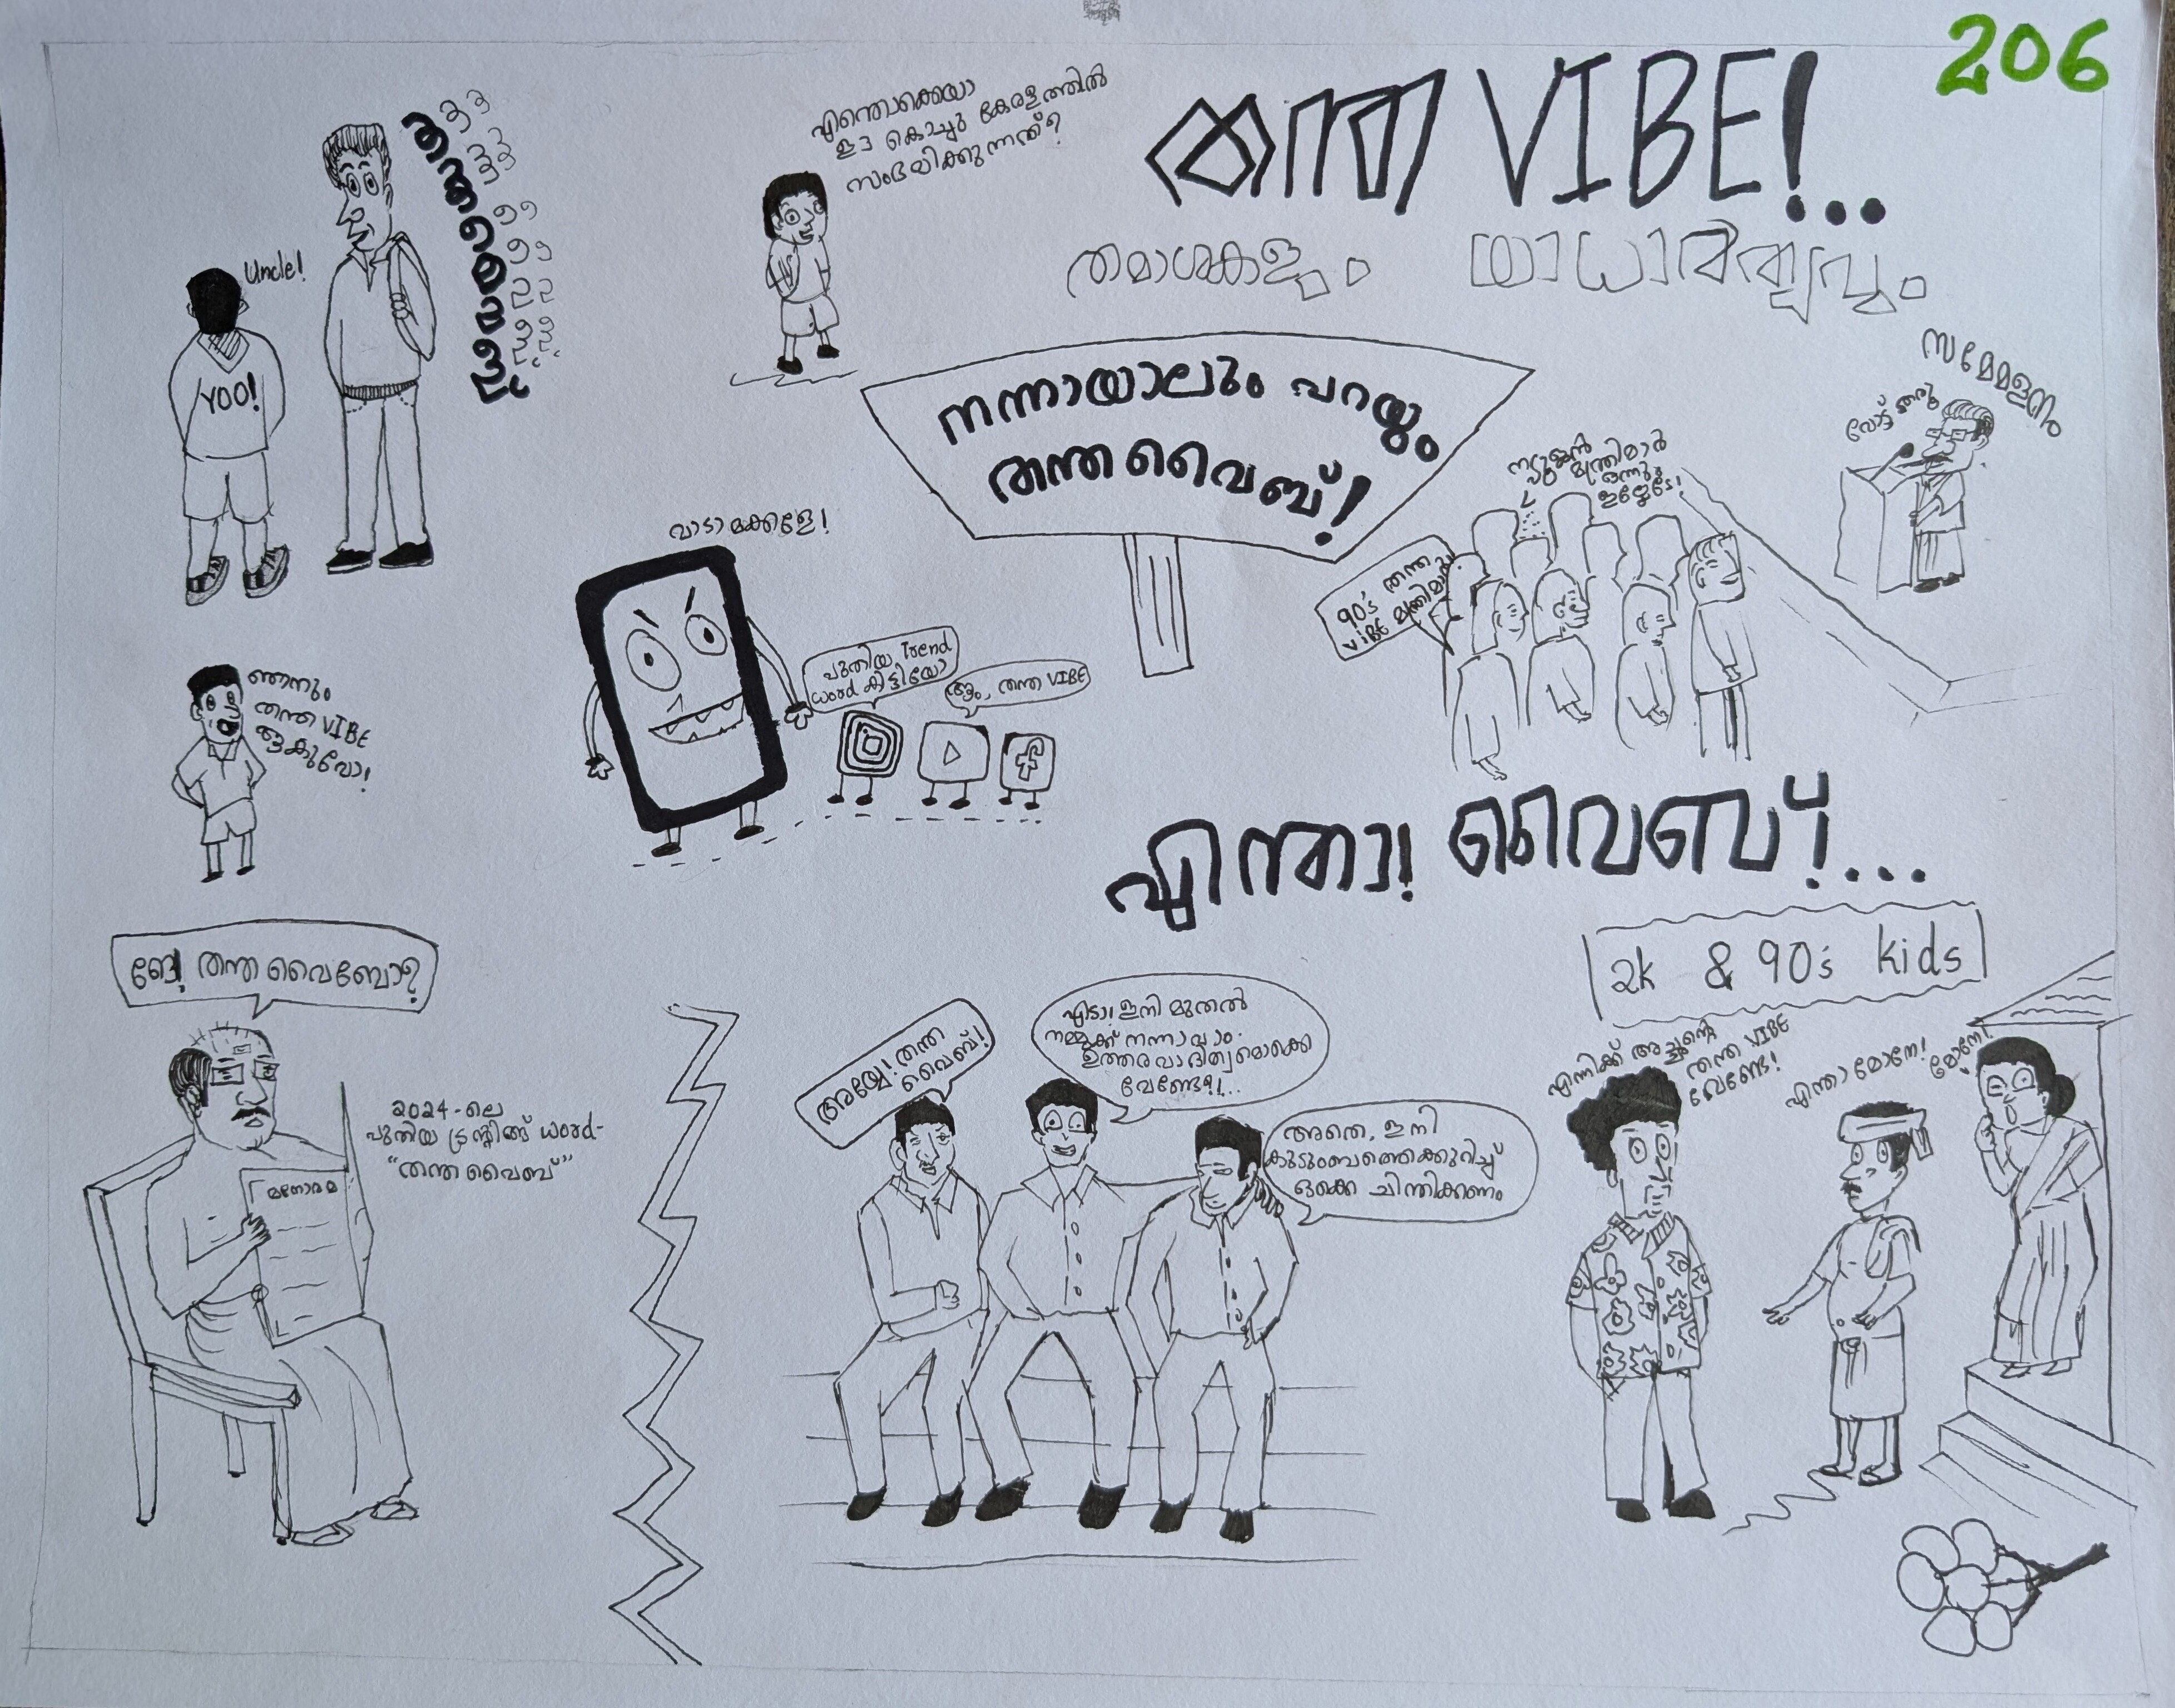 206
തന്ത VIBE!...
തമാശകളും യാധാര്ത്ഥ്യവും
എന്തൊക്കെയാ
ഈ കൊച്ചു കേരളത്തിൽ
സംഭവിക്കുന്നത്?
Uncle!
YOO!
നന്നായാലും പറയും
തന്ത വൈബ്!
സമ്മേളനം
വോട്ട് തരൂ
മന്ത്രിമാർ
ഒന്നും
ഇല്ലേടേ!
90's തന്ത
VIBE മന്ത്രിമാരാ!
വാടാ മക്കളേ!
പുതിയ Trend
word കിട്ടിയോ
ആം, തന്ത VIBE
ഞാനും
തന്ത VIBE
ആകുവോ!
എന്താ! വൈബ്!...
2k & 90's kids
ങേ! തന്ത വൈബോ?
2024-ലെ
പുതിയ ട്രന്റിങ്ങ് word-
"തന്ത വൈബ്"
മനോരമ
അയ്യേ! തന്ത
വൈബ്!
എടാ! ഇനി മുതൽ
നമ്മുക്ക് നന്നാവാം.
ഉത്തരവാദിത്വമൊക്കെ
വേണ്ടേ?!...
അതെ, ഇനി
കുടുംബത്തെക്കുറിച്ച്
ഒക്കെ ചിന്തിക്കണം
എന്നിക്ക് അച്ഛന്റെ
തന്ത VIBE
വേണ്ടേ!
എന്താ മോനേ!
മോനേ!